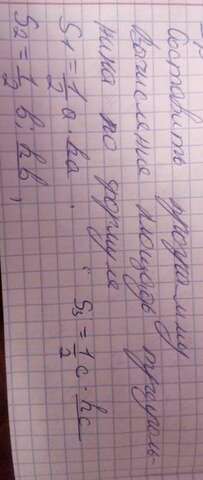 Составить программу
вычисления площадь треуголь-
ника по формуле
S₁ = 1/2 a · ha
S₂ = 1/2 b · hb,
S₃ = 1/2 c · hc